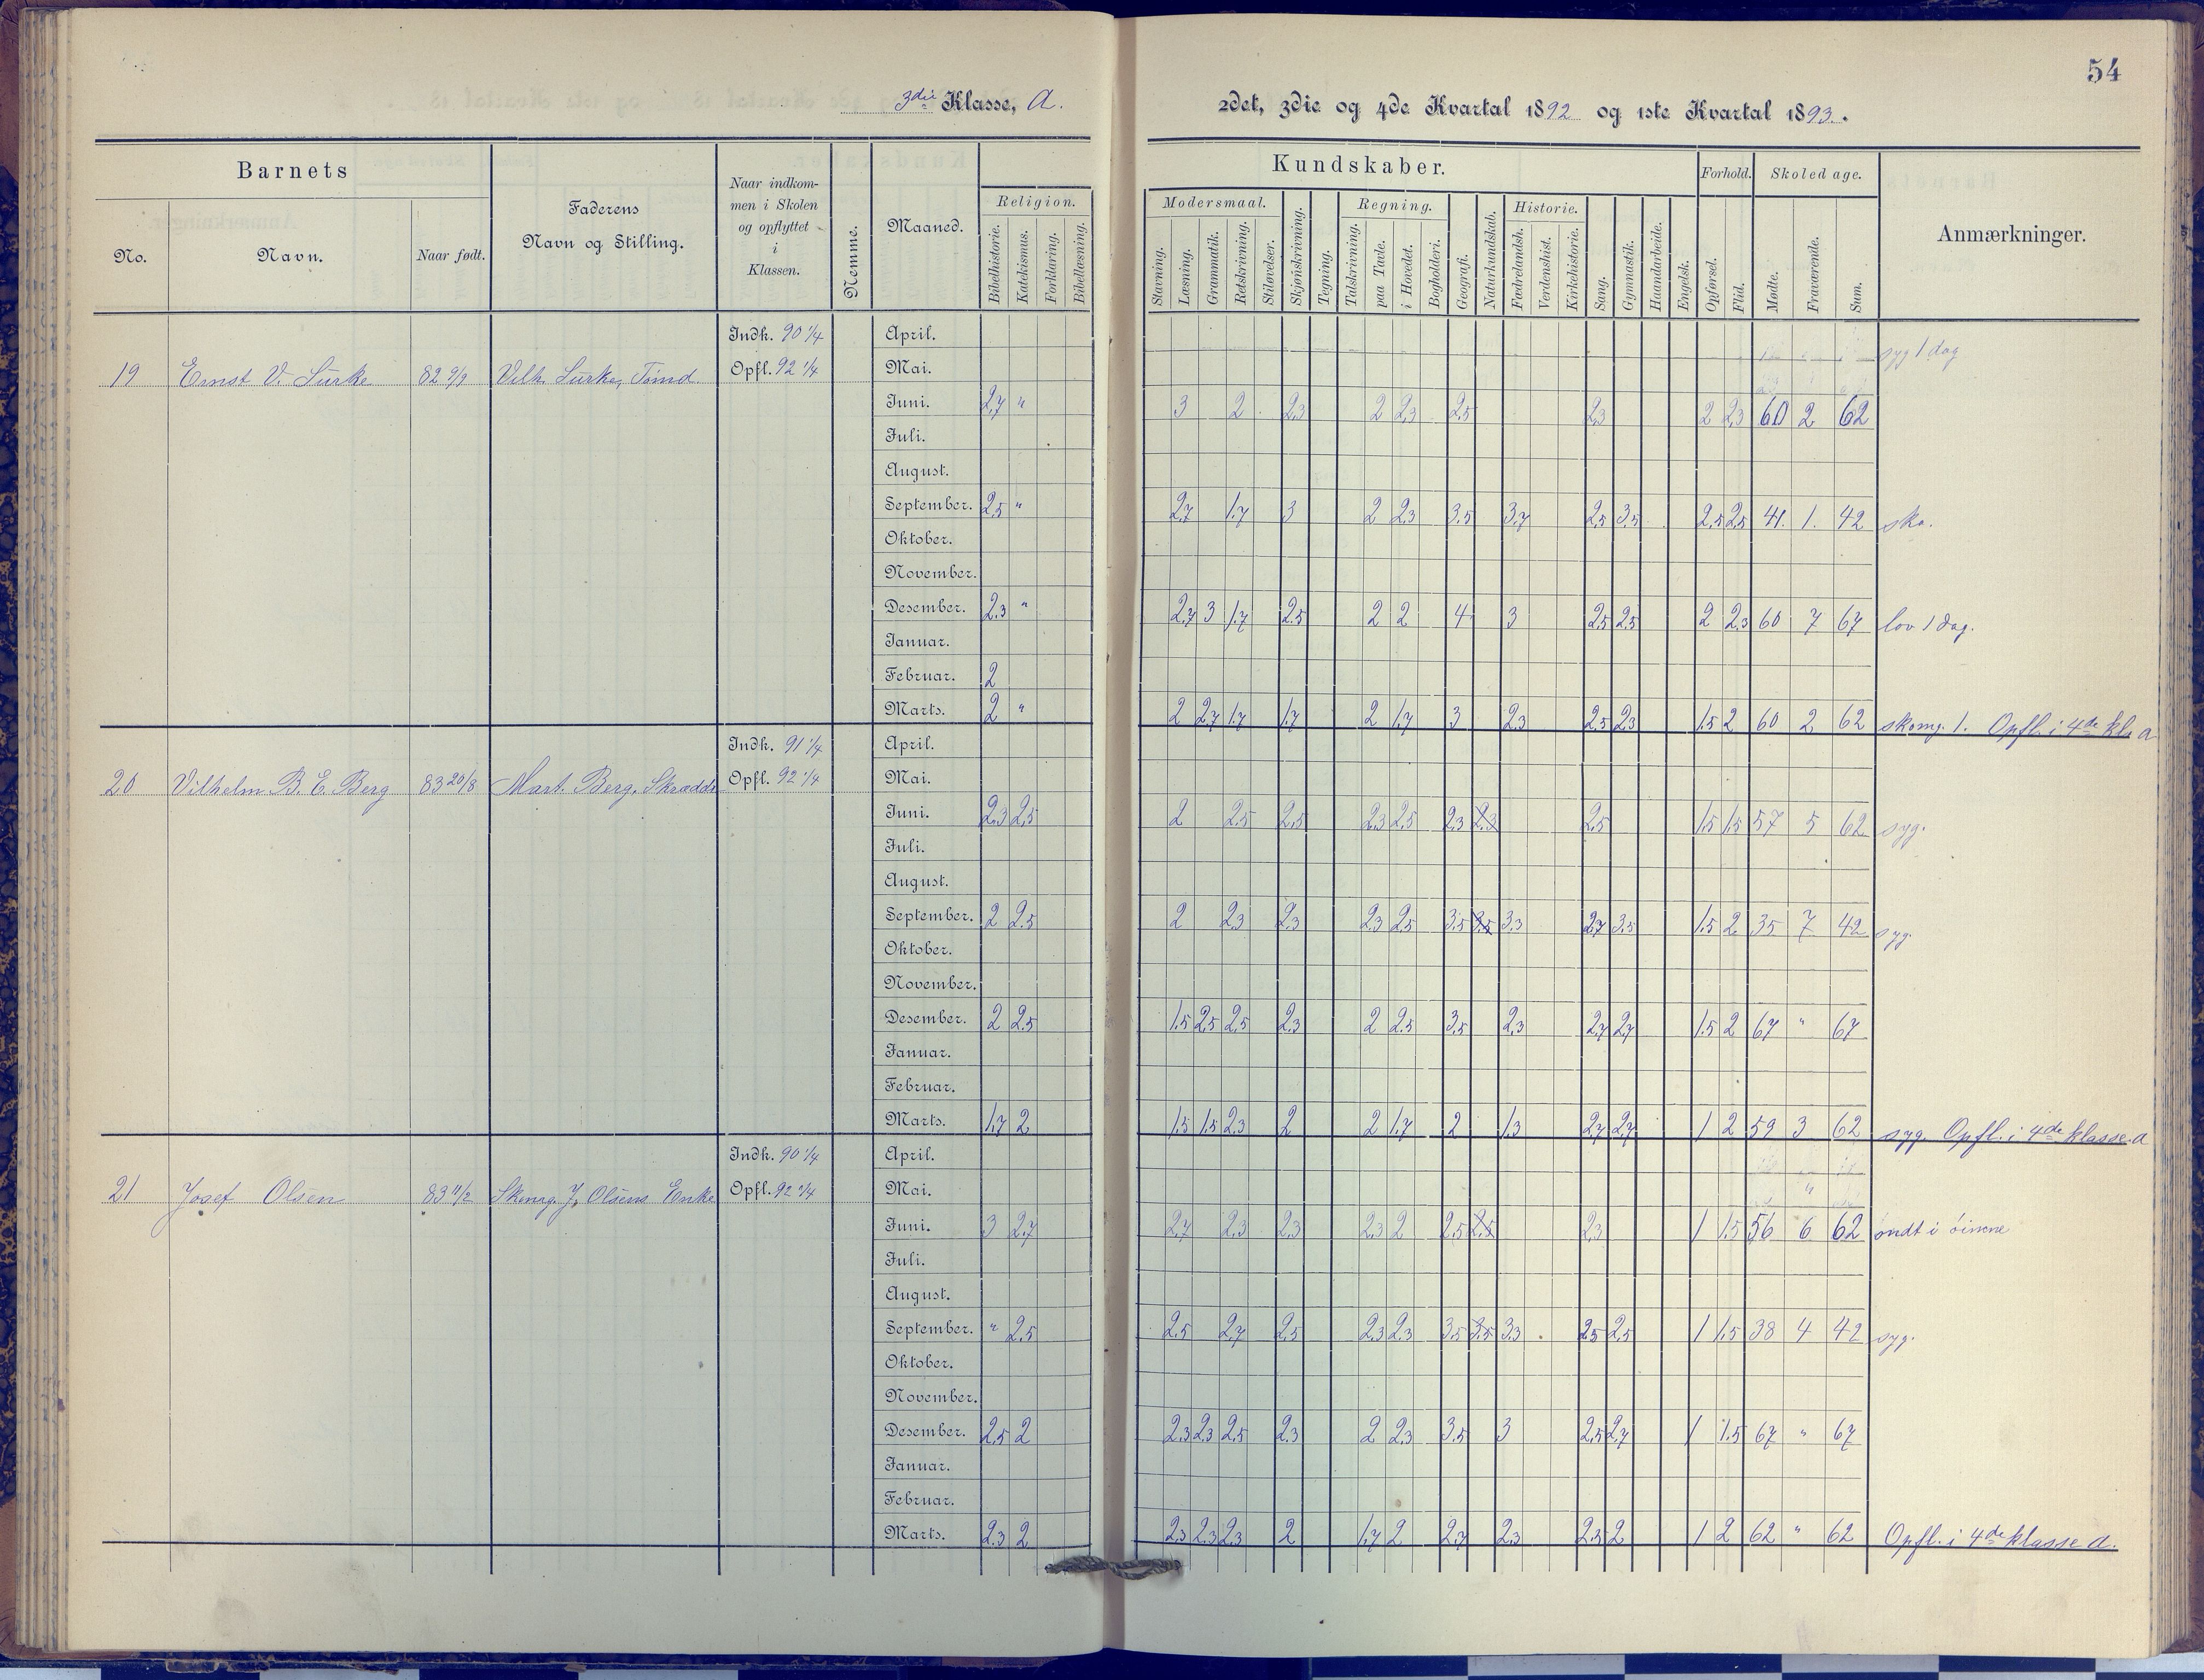 54
3die Klasse, A.
2det, 3die og 4de Kvartal 1892 og 1ste Kvartal 1893.
Barnets
No. Navn. Naar født.
Faderens Navn og Stilling.
Naar indkom-
men i Skolen
og opflyttet
i
Klassen.
Nemme.
Maaned.
Kundskaber.
Religion.
Bibelhistorie. Katekismus. Forklaring. Bibellæsning.
Modersmaal.
Stavning. Læsning. Grammatik. Retskrivning. Stiløvelser.
Skjønskrivning. Tegning.
Regning.
Talskrivning. paa Tavle. i Hovedet. Bogholderi.
Geografi. Naturkundskab.
Historie.
Fædrelandsh. Verdenshist. Kirkehistorie.
Sang. Gymnastik. Haandarbeide. Engelsk.
Forhold.
Opførsel. Flid.
Skoledage.
Mødte. Fraværende. Sum.
Anmærkninger.
Indk. 90 1/4 April.
syg 1 dag
19 Ernst V. 82 9/9 Vilh. Opfl. 92 1/4 Mai.
Juni. 2.7 " 3 2 2.3 2 2.3 2.5 2.3 2 2.3 60 2 62
Juli.
August.
September. 2.5 " 2.7 1.7 3 2 2.3 3.5 3.7 2.5 3.5 2.5 2.5 41. 1. 42 sko.
Oktober.
November.
Desember. 2.3 " 2.7 3 1.7 2.5 2 2 4 3 2.5 2.5 2 2.3 60 7 67 lov 1 dag.
Januar.
Februar. 2
Marts. 2 " 2 2.7 1.7 1.7 2 1.7 3 2.3 2.5 2.3 1.5 2 60 2 62 skomg. 1. Opfl. i 4de kl. a
Indk. 91 1/4 April.
20 Vilhelm B. E. Berg 83 20/8 Mart. Berg, Skrædder Opfl. 92 1/4 Mai.
Juni. 2.3 2.5 2 2.5 2.5 2.3 2.5 2.3 2.3 2.5 1.5 1.5 57 5 62 syg.
Juli.
August.
September. 2 2.5 2 2.3 2.3 2.3 2.5 3.5 3.5 3.3 2.7 3.5 1.5 2 35 7 42 syg.
Oktober.
November.
Desember. 2 2.5 1.5 2.5 2.5 2.3 2 2.5 3.5 2.3 2.7 2.7 1.5 2 67 " 67
Januar.
Februar.
Marts. 1.7 2 1.5 1.5 2.3 2 2 1.7 2 1.3 2.7 2.7 1 2 59 3 62 syg. Opfl. i 4de klasse a
Indk. 90 1/4 April.
21 Josef Olsen 83 11/2 J. Olsens Enke Opfl. 92 1/4 Mai.
Juni. 3 2.7 2.7 2.3 2.3 2.3 2 2.5 2.5 2.3 1 1.5 56 6 62 ondt i öinene
Juli.
August.
September. " 2.5 2.5 2.7 2.5 2.3 2.3 3.5 3.5 3.3 2.5 2.5 1 1.5 38 4 42 syg.
Oktober.
November.
Desember. 2.5 2 2.3 2.3 2.5 2.3 2 2.3 3.5 3 2.5 2.7 1 1.5 67 " 67
Januar.
Februar.
Marts. 2.3 2 2.3 2.3 2.3 2 1.7 2 2.7 2.3 2.3 2 1 2 62 " 62 Opfl. i 4de klasse a.